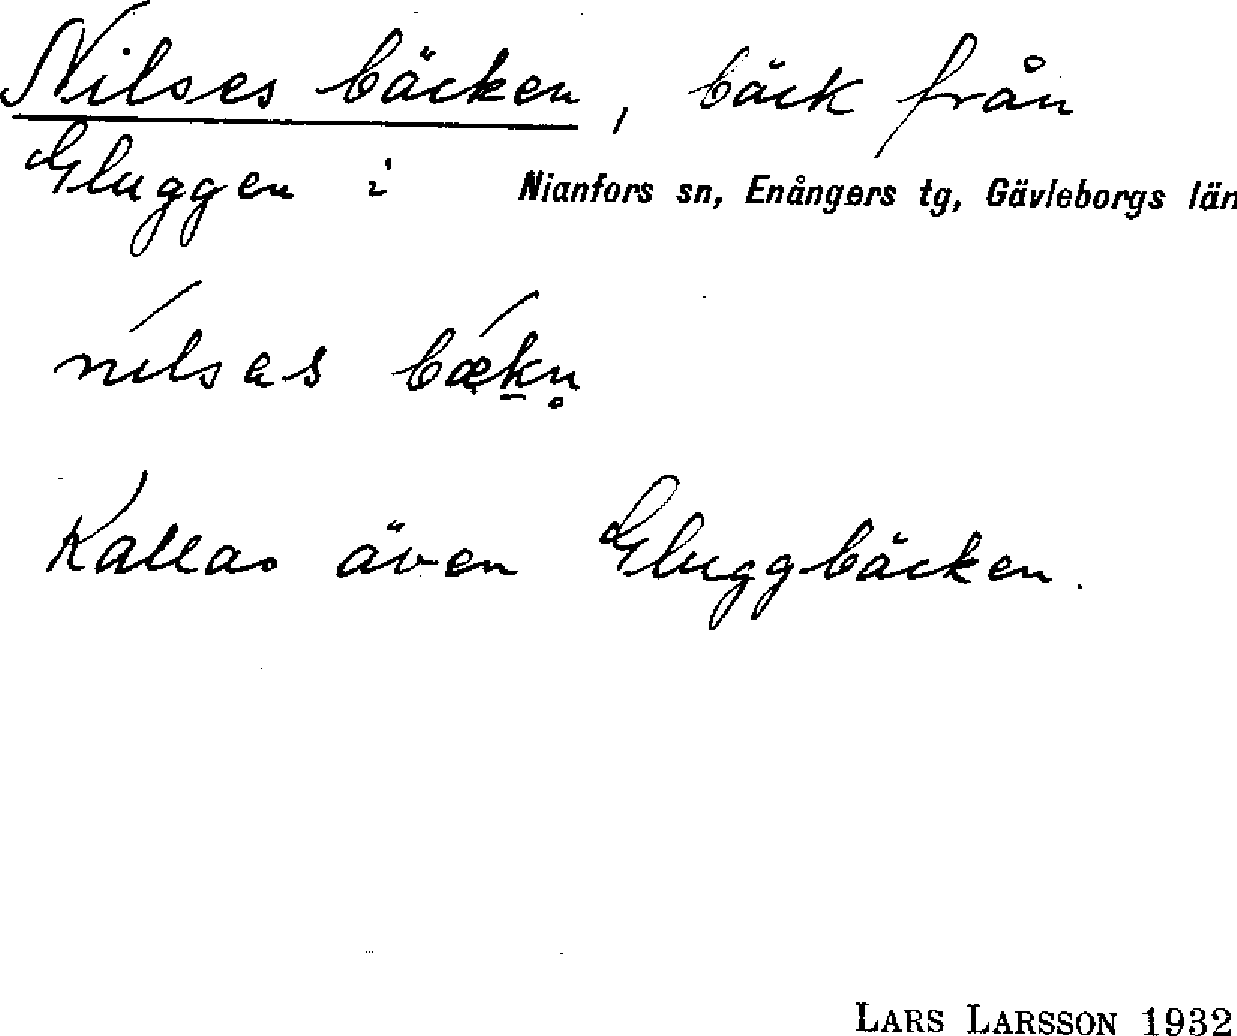 Nilses bäcken, bäck från
Gluggen i Nianfors sn, Enångers tg, Gävleborgs län
Kallas även Gluggbäcken.
LARS LARSSON 1932